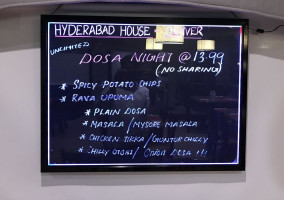 HYDERABAD HOUSE DENVER
UNLIMITED
DOSA NIGHT @ 13.99
(NO SHARING)
* SPICY POTATO CHIPS
* RAVA UPUMA
* PLAIN DOSA
* MASALA / MYSORE MASALA
* CHICKEN TIKKA / GUNTUR CHILLY
* CHILLY / ONION DOSA !!!